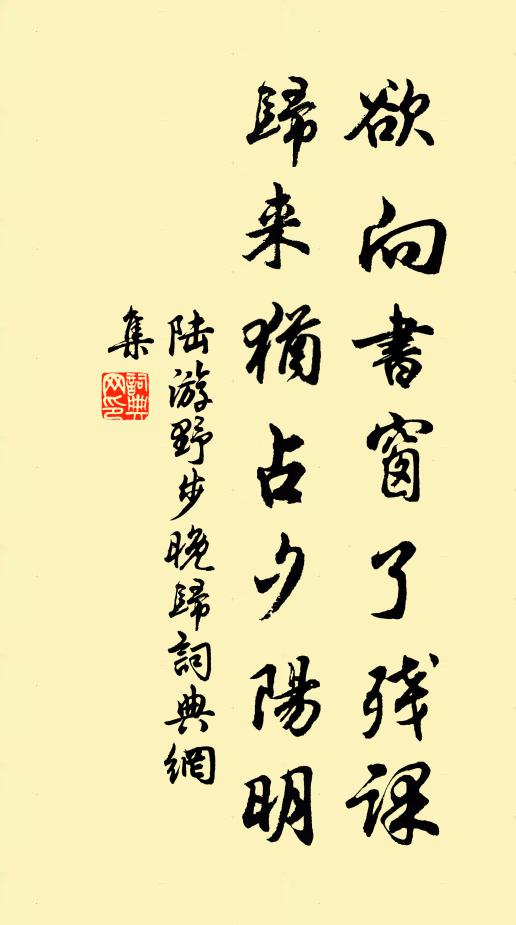 欲向書窗了残課
歸来猶占夕陽明
陆游野步晚歸詞典網
集
詞典网印